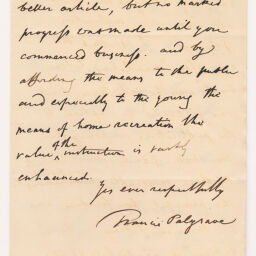 better article, but no marked
progress was made until you
commenced business. and by
affording the means to the public
and especially to the young the
means of home recreation the
value of the instruction is vastly
enhanced.
Yrs ever respectfully
Francis Palgrave